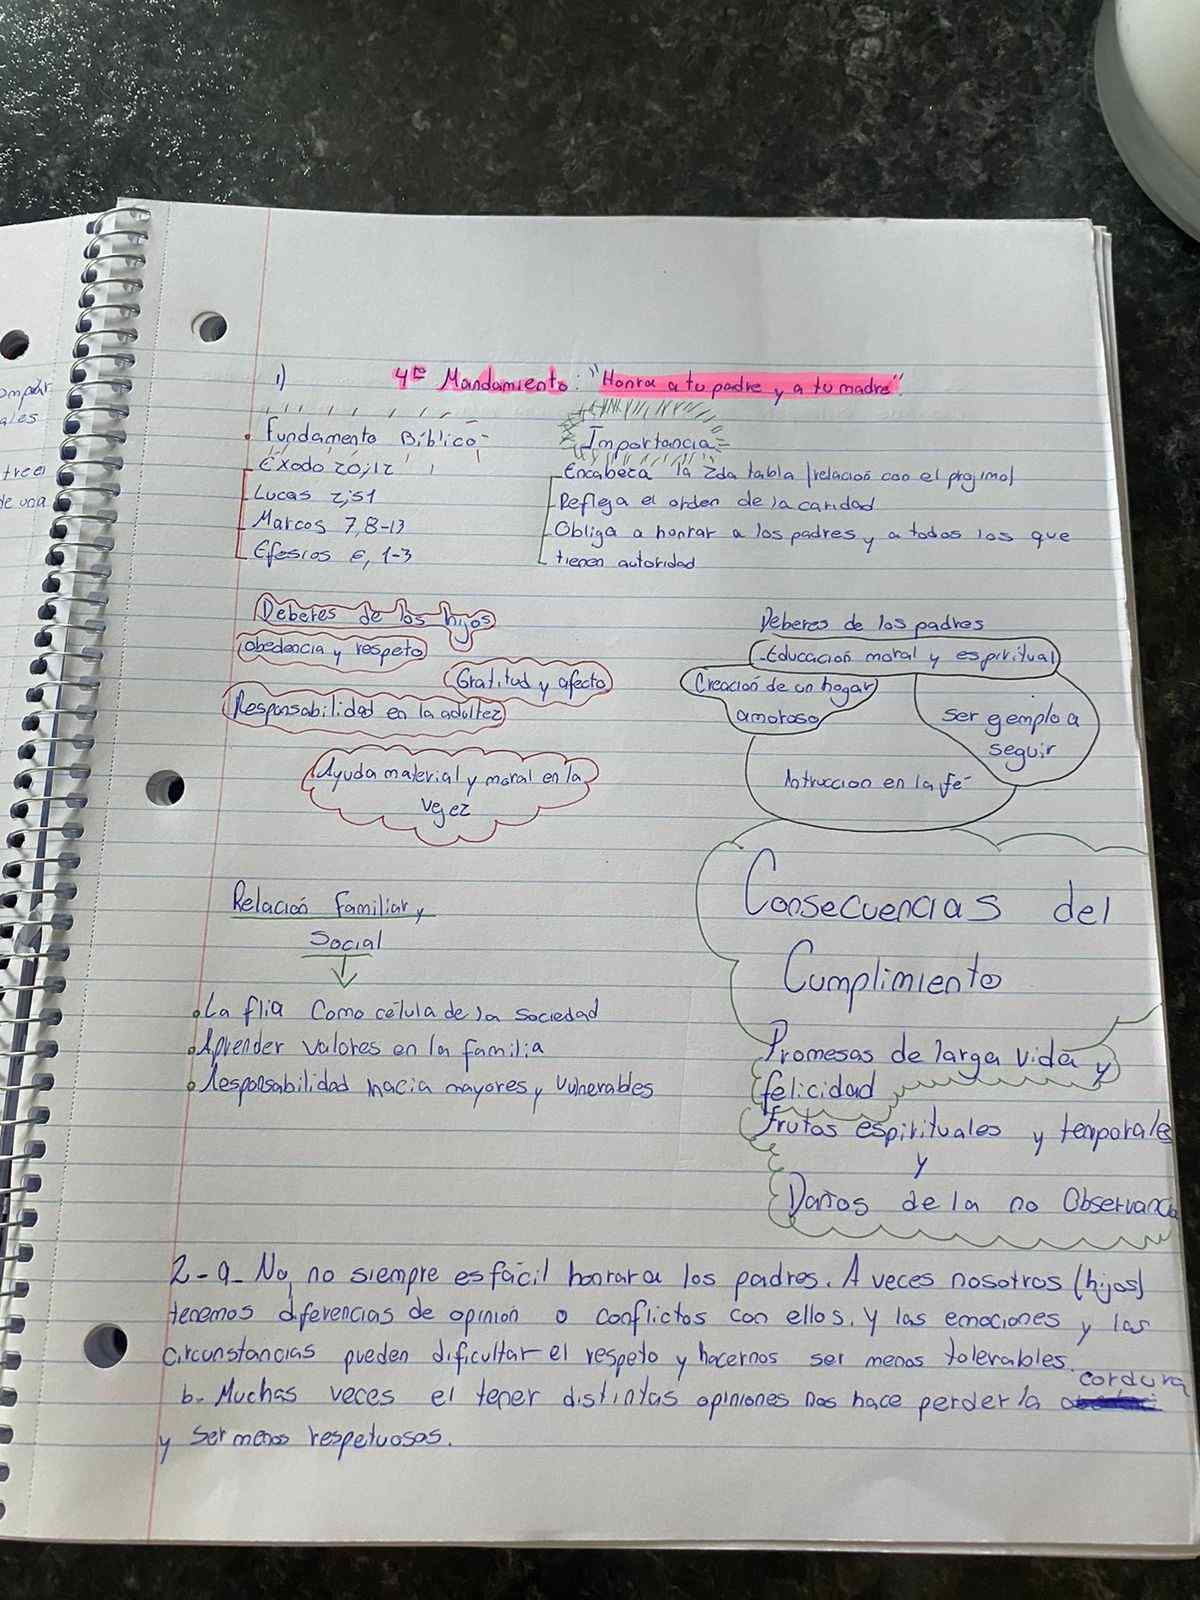 ompar
ales
tree
de una
1) 4to Mandamiento: "Honra a tu padre y a tu madre".
Fundamento Bíblico
Éxodo 20,12
Lucas 2,51
Marcos 7,8-13
Efesios 6, 1-3
Importancia
Encabeza la 2da tabla (relación con el progimo)
Refleja el orden de la caridad
Obliga a honrar a los padres y a todos los que
tienen autoridad
Deberes de los hijos
obedencia y respeto
Gratitud y afecto
Responsabilidad en la adultez
Ayuda material y moral en la
vejez
Deberes de los padres
-Educación moral y espiritual
Creación de un hogar
amoroso
ser ejemplo a
seguir
Intruccion en la fé
Relación familiar y
Social
• La flia como célula de la sociedad
• Aprender valores en la familia
• Responsabilidad hacia mayores y vulnerables
Consecuencias del
Cumplimiento
Promesas de larga vida y
felicidad
frutos espirituales y temporales
y
Daños de la no Observancia
2-a- No, no siempre es fácil honrar a los padres. A veces nosotros (hijos)
tenemos diferencias de opinión o conflictos con ellos, y las emociones y las
circunstancias pueden dificultar el respeto y hacernos ser menos tolerables.
b. Muchas veces el tener distintas opiniones nos hace perder la cordura
y ser menos respetuosos.